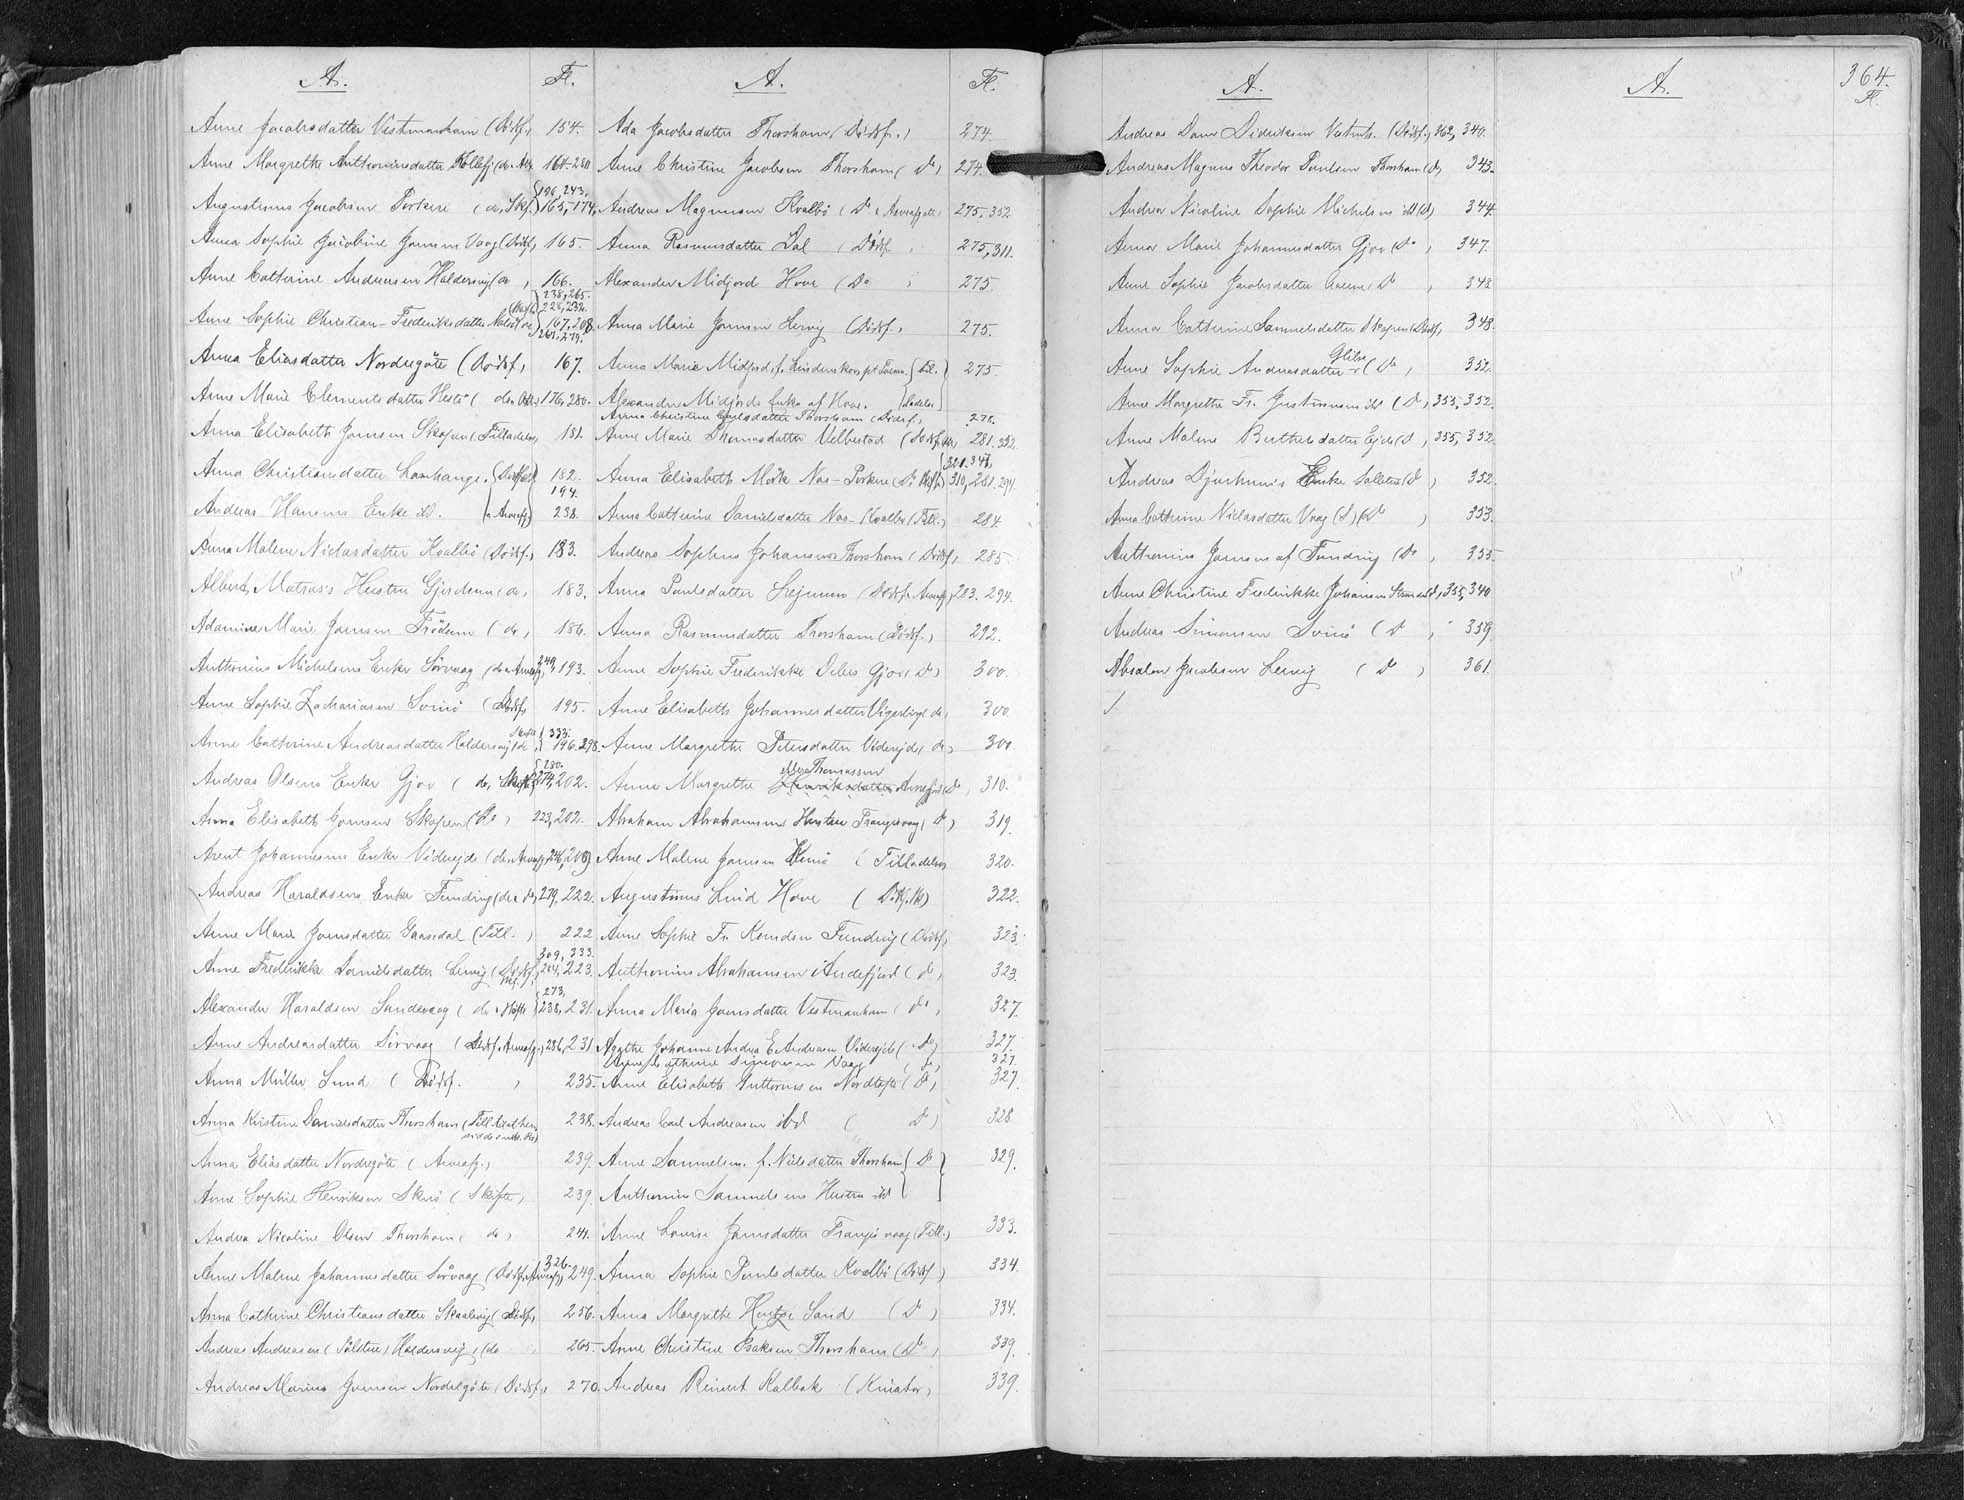 A.
Fl.
Anne Jacobsdatter Vestmanhavn (Dödsf.) 154.
Anne Margrethe Anthoniusdatter Kollefj (do. 164. 280
196, 243.
Augustinus Jacobsen Porkere (do, Skf.) 165, 174,
Anna Sophie Jacobine Joensen Vaag (Dödsf.) 165.
Anne Catherine Andreasen Haldersvig (do) 166.
238, 265.
228, 232.
Anne Sophie Christian-Frederiksdatter 167, 208
261, 279.
Anna Eliasdatter Nordregöte (Dödsf.) 167.
Anne Marie Clementsdatter Hestö (do. 176, 280.
Anna Elisabeth Joensen Skopen (Tilladelse) 181.
Anna Christiansdatter (Dödsf.) 182.
194.
Andreas Hansens Enke ibd. (Arveafg) 238.
Anna Malene Niclasdatter Kvalbö (Dödsf.) 183.
Albert Matras's Hustru (do) 183.
Adamine Marie Joensen Frödum (do) 186.
Anthonius Michelsens Enke Sörvaag (do Arveafg) 249, 193.
Anne Sophie Zachariasen Svinö (Dödsf.) 195.
333.
Anne Cathrine Andreasdatter Haldersvig (do) 196. 298.
280.
Andreas Olsens Enke Gjov (do, Skifte) 274, 202.
Anna Elisabeth Joensen Skopen (Do) 223, 202.
Arent Johannesens Enke Videreide (do, Arveafg) 246, 206
Andreas Haraldsens Enke Funding (do & do) 279, 222.
Anne Marie Joensdatter Gaasedal (Till.) 222
309, 333.
Anne Frederikke Danielsdatter Lervig (Dödsf.) 204, 223.
273,
Alexander Haraldsen Sandevaag (do & Skifte) 238, 231.
Anne Andreasdatter Sörvaag (Dödsf. Arveafg.) 286, 231
Anna Müller Sund (Dödsf.) 235.
Anna Kristine Danielsdatter Thorshavn (Till 238.
Anna Eliasdatter Nordregöte (Arveafg.) 239.
Anne Sophie Henriksen Skuö (Skifte) 239.
Andrea Nicoline Olsen Thorshavn (do) 241.
326.
Anne Malene Johannesdatter Sörvaag (Dödsf, Arveafg) 249.
Anna Cathrine Christiansdatter Skaalevig (Dödsf.) 256.
Andreas Andreasen Haldersvig (do 265.
Andreas Marius Joensen Nordregöte (Dödsf.) 270.
A.
Fl.
Ada Jacobsdatter Thorshavn (Dödsf.) 274.
Anne Christine Jacobsen Thorshavn (Do) 274.
Andreas Magnussen Kvalbö (Do & Arveafgift) 275, 352
Anna Rasmusdatter Dal (Dödsf. 275, 311.
Alexander Midjord Hove (Do 275.
Anna Marie Joensen Lervig (Dödsf.) 275.
Anna Marie Midjord, f. 275.
Alexander Midjords Enke af Hove.
Anna Christine Thorshavn (Dödsf.) 278.
Anne Marie Thomasdatter Velbestad (Dödsf. 281, 332
321. 341,
Anna Elisabeth Mörk Næs-Porkere 310, 281, 294
Anna Catherine Danielsdatter Næs-Kvalbö (Till.) 284.
Andreas Sophus Johansen Thorshavn (Dödsf.) 285.
Anna Poulsdatter (Dödsf. Arveafg.) 283. 294.
Anna Rasmusdatter Thorshavn (Dödsf.) 292.
Anne Sophie Frederikke Debes Gjov (Do) 300.
Anne Elisabeth Johannesdatter (do) 300
Anne Margrethe Petersdatter Videreide (do) 300.
Thomassen
Anne Margrethe Henriksdatter Arnefjord (Do) 310.
Abraham Abrahamsens Hustru Trangisvaag (Do) 319.
Anne Malene Joensen Kunö (Tilladelse) 320.
Augustinus Lind Hove 322.
Anne Sophie Fr. Knudsen Funding (Dödsf.) 323.
Anthonius Abrahamsen i Andefjord (do) 323.
Anna Maria Joensdatter Vestmanhavn (do) 327.
Agathe Johanne Andrea E. Andreasen Videreide (Do) 327
Anne Catherine Simonsen Vaag (do) 327.
Anne Elisabeth Guttormsen Nordtofte (Do) 327.
Andreas Carl Andreasen ibd (Do) 328
Anne Samuelsen f. Nielsdatter Thorshavn (Do) 329.
Anthonius Samuelsens Hustru ibd
Anne Lovise Joensdatter Trangisvaag (Till.) 333.
Anna Sophie Poulsdatter Kvalbö (Dödsf.) 334.
Anna Margrethe Hentze Sand (Do) 334.
Anne Christine Isaksen Thorshavn (Do) 339.
Andreas Reinert Kalbak (Kurator) 339.
A.
Andreas Dam Dideriksen Vestmh. (Dödsf.) 362, 340.
Andreas Magnus Theodor Poulsen Thorshavn (Do) 343.
Andrea Nicoline Sophie Michelsen ibd (Do) 344
Anna Marie Johannesdatter Gjov (Do) 347.
Anne Sophie Jacobsdatter (Do) 348
Anna Catherine Samuelsdatter Skopen (Dödsf.) 348.
Glibre
Anne Sophie Andreasdatter (Do) 352.
Anne Margrethe Fr. Justinussen ibd (Do) 355, 352.
Anne Malene Berthelsdatter Ejde (Do) 355, 352
Andreas Djurhuus's Enke Solstein (Do) 352.
Anna Cathrine Niclasdatter Vaag (Do) 353.
Anthonius Joensen af Funding (Do) 355.
Anne Christine Frederikke Johansen 355, 340
Andreas Simonsen Svinö (Do) 359.
Absalon Jacobsen Lervig (Do) 361.
A.
364.
Fl.